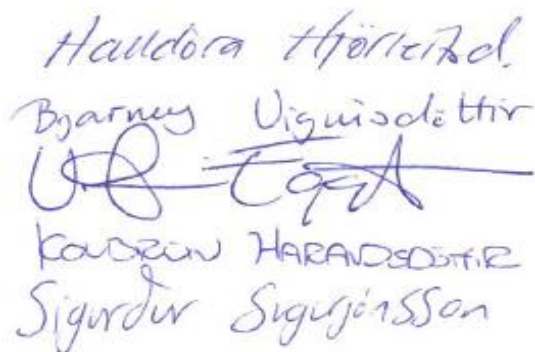 Halldóra Hjörleifsd.
Bjarney Vignisdóttir
KOLBRÚN HARALDSDÓTTIR
Sigurður Sigurjónsson